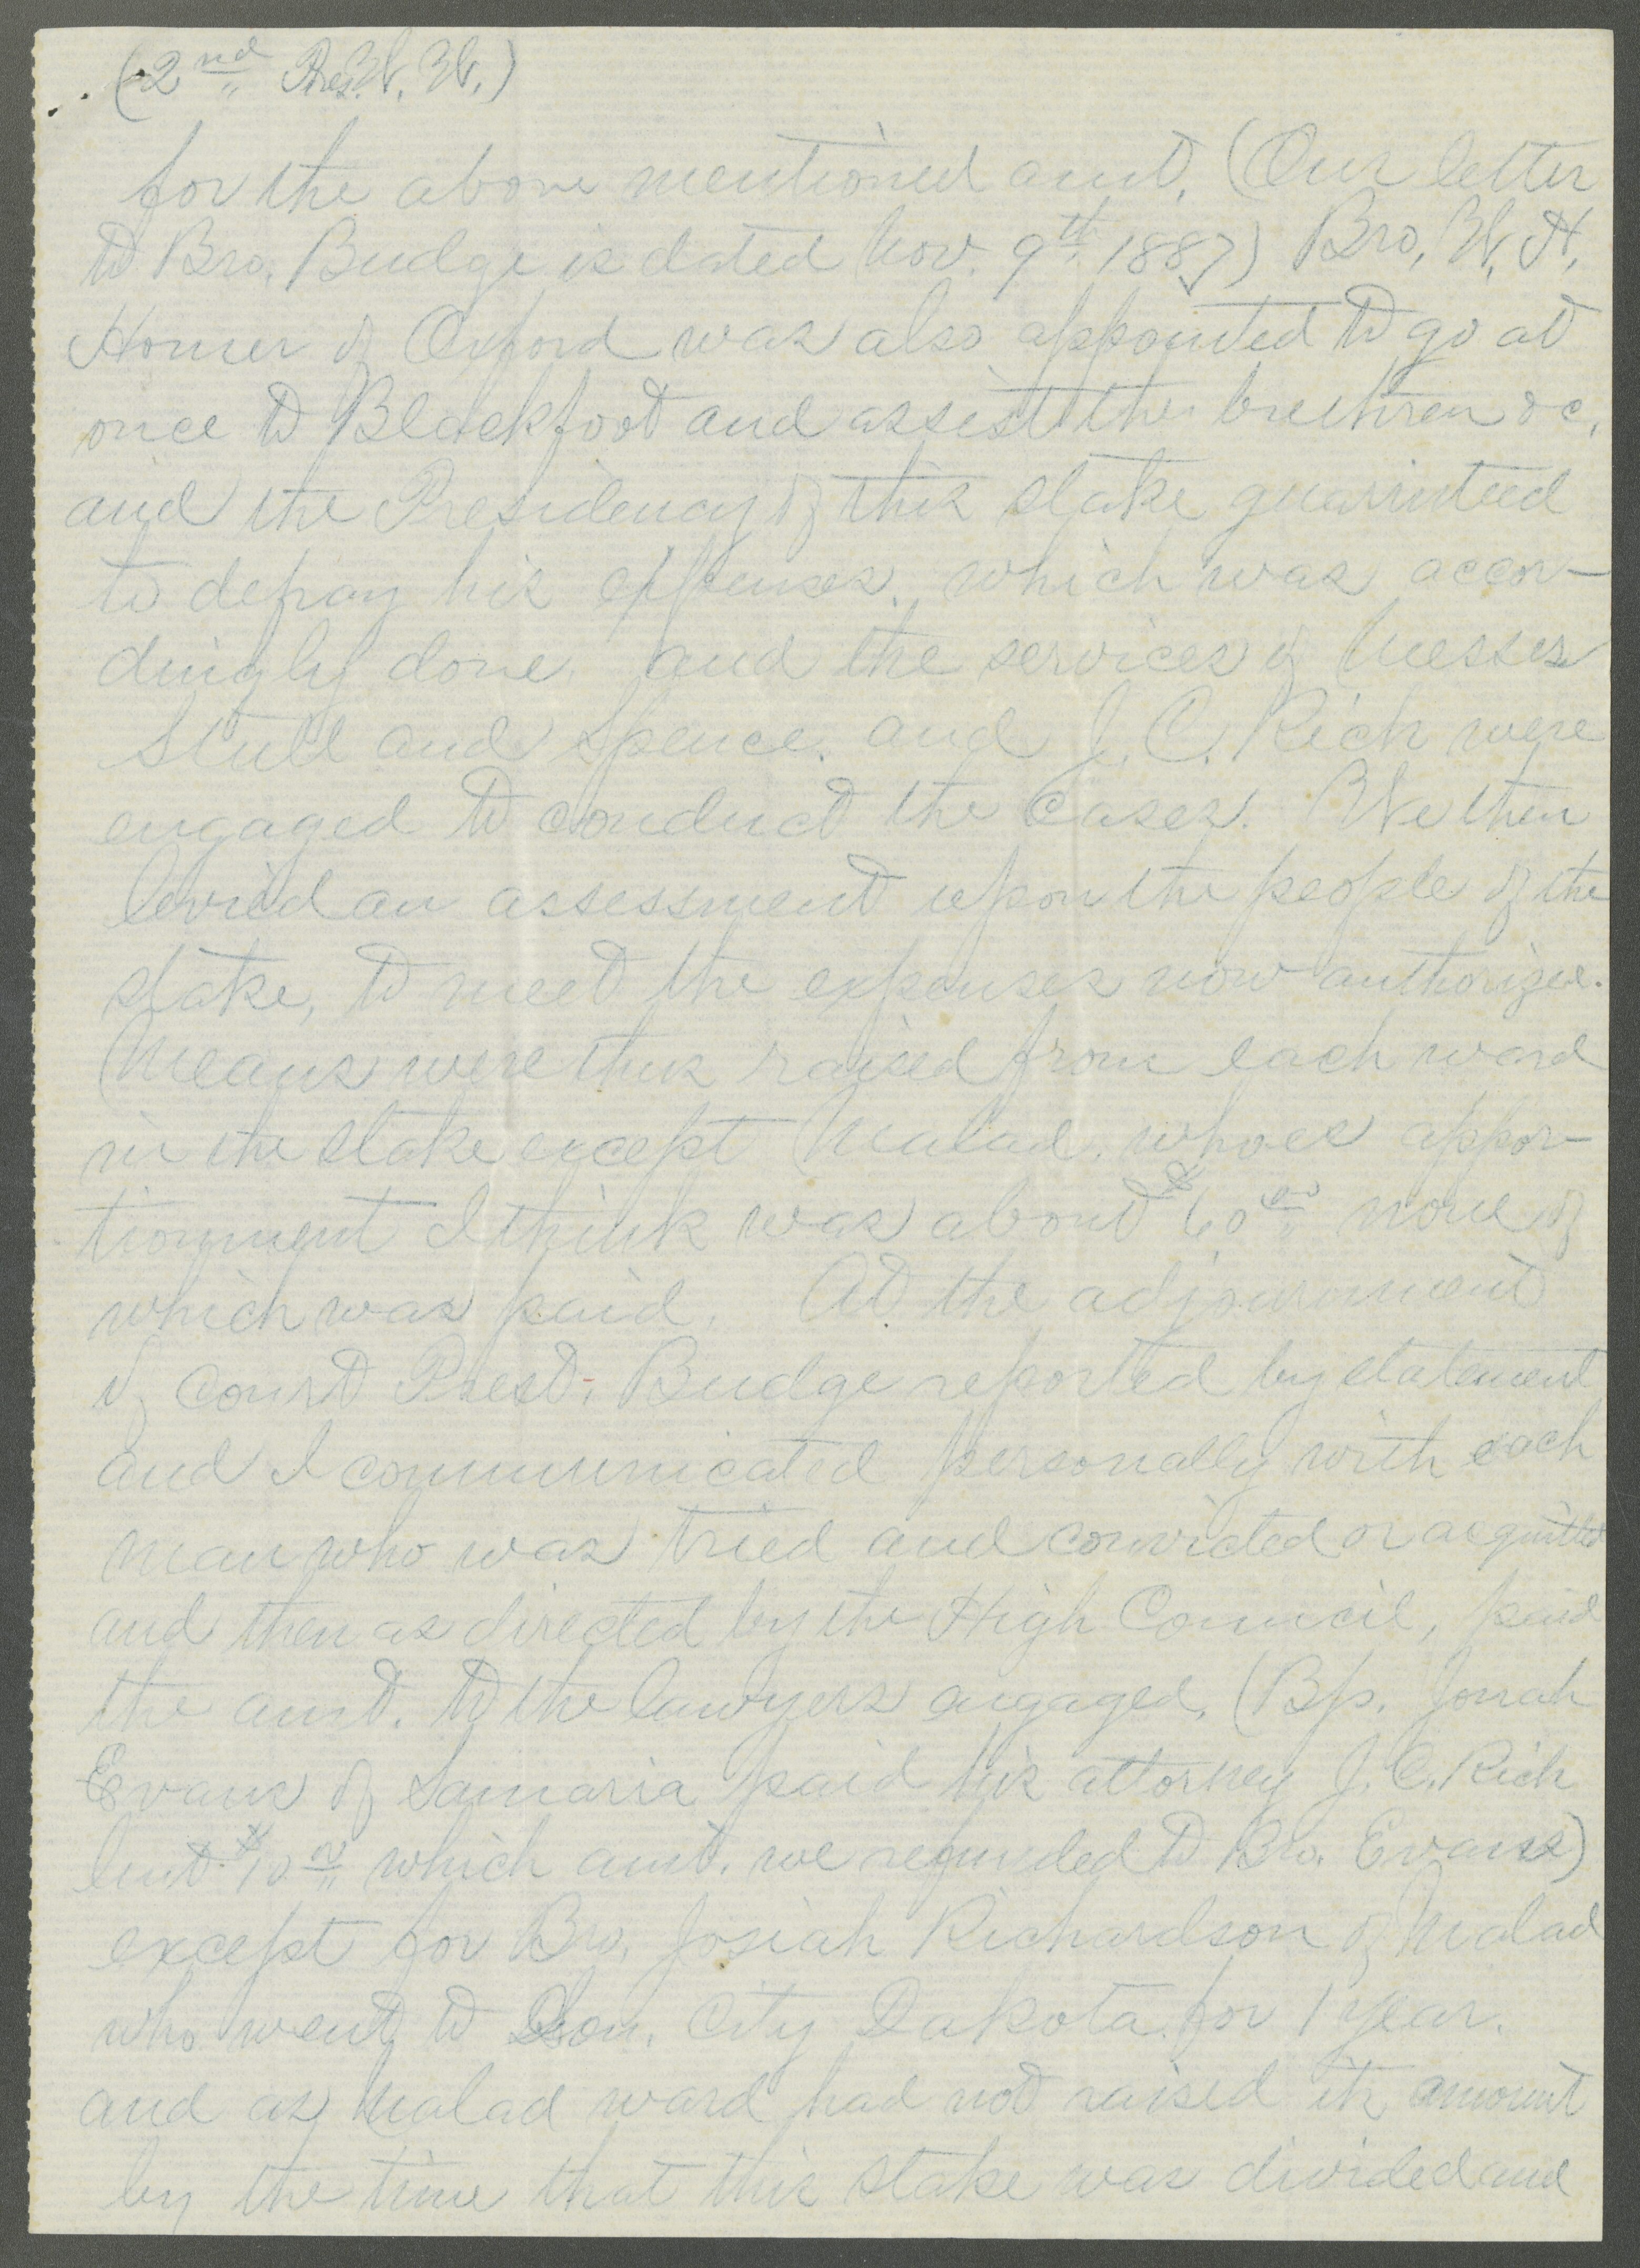 (2nd Pres. W. W.)
for the above mentioned amt. (Our letter
to Bro. Budge is dated Nov. 9th 1887) Bro. W. H.
Homer of Oxford was also appointed to go at
once to Blackfoot and assist the brethren &c,
and the Presidency of this stake guarrinteed
to defray his expenses. which was accor-
dingly done, and the services of Messrs
Stull and Spence. and J. C. Rich were
engaged to conduct the cases. We then
levied an assessment upon the people of the
stake, to meet the expenses now authorized.
Means were thus raised from each ward
in the stake except Malad. whoes appor-
tionment I think was about $60 00 none of
which was paid. At the adjournment
of court Prest. Budge reported by statement
and I communicated personally with each
man who was tried and convicted or acquitted
and then as directed by the High Council, paid
the amt. to the lawyers engaged, (Bp. Jonah
Evans of Samaria paid his attorney J. C. Rich
but $10 00 which amt. we refunded to Bro. Evans)
except for Bro. Josiah Richardson of Malad
who went to City Dakota for 1 year.
and as Malad ward had not raised its amount
by the time that this stake was divided and